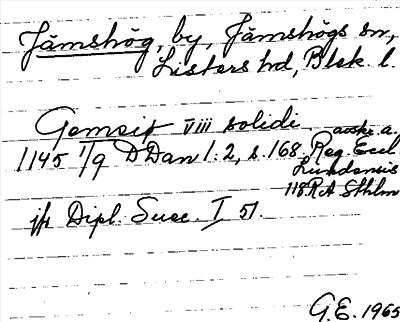 Jämshög, by, Jämshögs sn,
Listers hd, Blek. l.
Gemsiø VIII solidi avskr. a.
1145 1/9 D Dan 1:2, s. 168 Reg. Eccl
Lundensis
118 RA Sthlm
jfr Dipl. Suec. I 51.
G.E. 1965